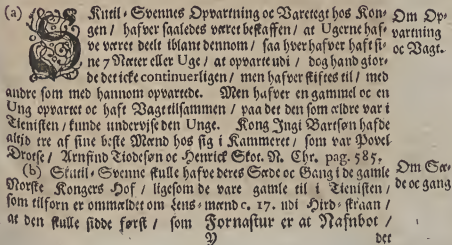 (a) SKutil-Svennes Opvartning oc Varetegt hos Kon-
gen / hafver saaledes været beskaffen / at Ugerne haf-
ve været deelt iblant dennom / saa hver hafver haft si-
ne 7 Nætter eller Uge / at opvarte udi / dog hand gior-
de det icke continuerligen / men hafver skiftes til / med
andre som med hannom opvartede. Men hafver en gammel oc en
Ung opvartet oc haft Vagt tilsammen / paa det den som ældre var i
Tienisten / kunde undervise den Unge. Kong Ingi Bartsøn hafde
altid tre af sine beste Mænd hos sig i Kammeret / som var Povel
Drotse / Arnfind Tiodesøn oc Henrick Skot. N. Chr. pag. 585.
(b) Skutil-Svenne skulle hafve deres Sæde oc Gang i de gamle
Norske Kongers Hof / ligesom de vare gamle til i Tienisten /
som tilforn er ommældet om Lens-mænd c. 17. udi Hird-skraan /
at den skulle sidde først / som Fornastur er at Nafnbot /
Y det
Om Op-
vartning
oc Vagt.
Om Sæ-
de oc gang